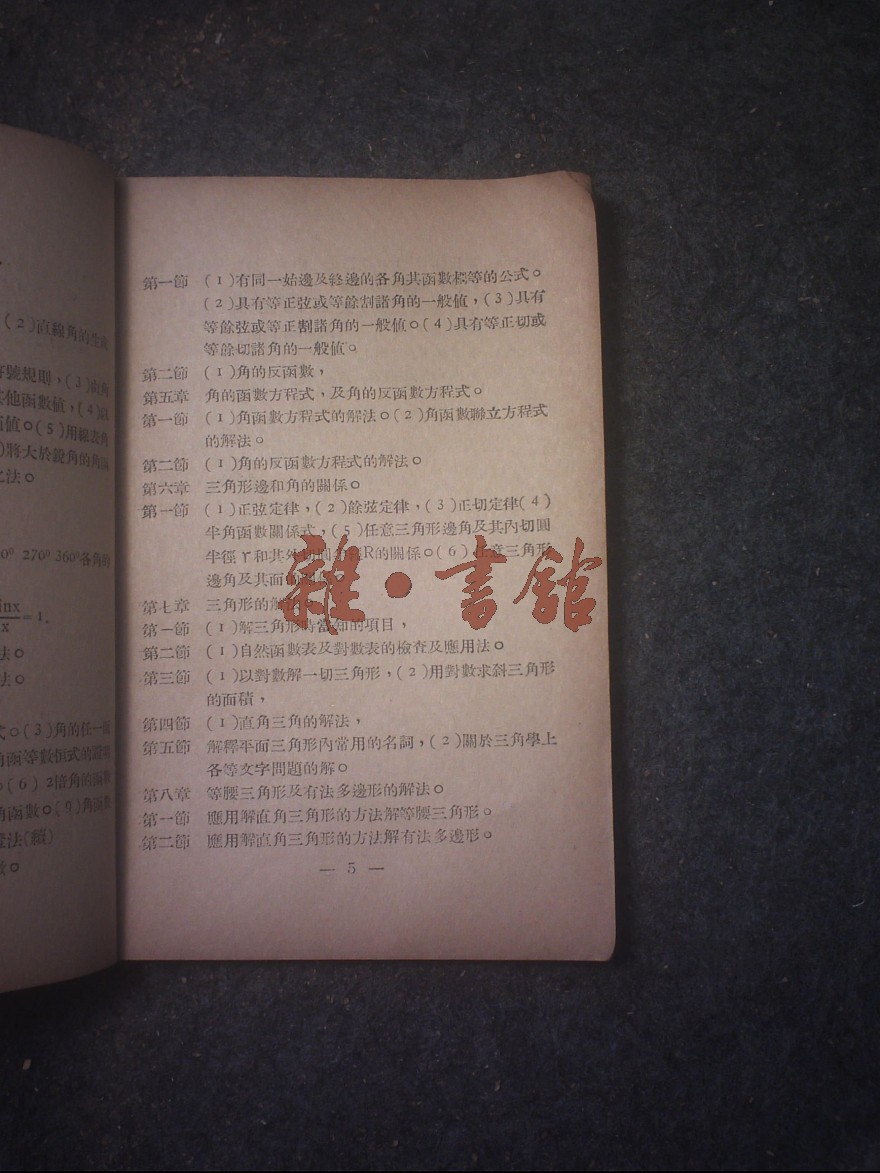 (2)直線角的
號規則，(3)由角
其他函數值，(4)以
值。(5)用線表角
將大於銳角的角
法。
270⁰ 360⁰各角的
inx
x
=1.
法。
法。
式。(3)角的任一
角函等數恒式的證
(6) 2倍角的函數
角函數。(7)角函數
法(續)
數。
第一節 (1)有同一始邊及終邊的各角其函數標等的公式。
(2)具有等正弦或等餘割諸角的一般值，(3)具有
等餘弦或等正割諸角的一般值。(4)具有等正切或
等餘切諸角的一般值。
第二節 (1)角的反函數，
第五章 角的函數方程式，及角的反函數方程式。
第一節 (1)角函數方程式的解法。(2)角函數聯立方程式
的解法。
第二節 (1)角的反函數方程式的解法。
第六章 三角形邊和角的關係。
第一節 (1)正弦定律，(2)餘弦定律，(3)正切定律(4)
半角函數關係式，(5)任意三角形邊角及其內切圓
半徑r和其外切圓半徑R的關係。(6)任意三角形
邊角及其面
雜·書館
第七章 三角形的解法。
第一節 (1)解三角形時當知的項目，
第二節 (1)自然函數表及對數表的檢查及應用法。
第三節 (1)以對數解一切三角形，(2)用對數求斜三角形
的面積，
第四節 (1)直角三角的解法，
第五節 解釋平面三角形內常用的名詞，(2)關於三角學上
各等文字問題的解。
第八章 等腰三角形及有法多邊形的解法。
第一節 應用解直角三角形的方法解等腰三角形。
第二節 應用解直角三角形的方法解有法多邊形。
— 5 —